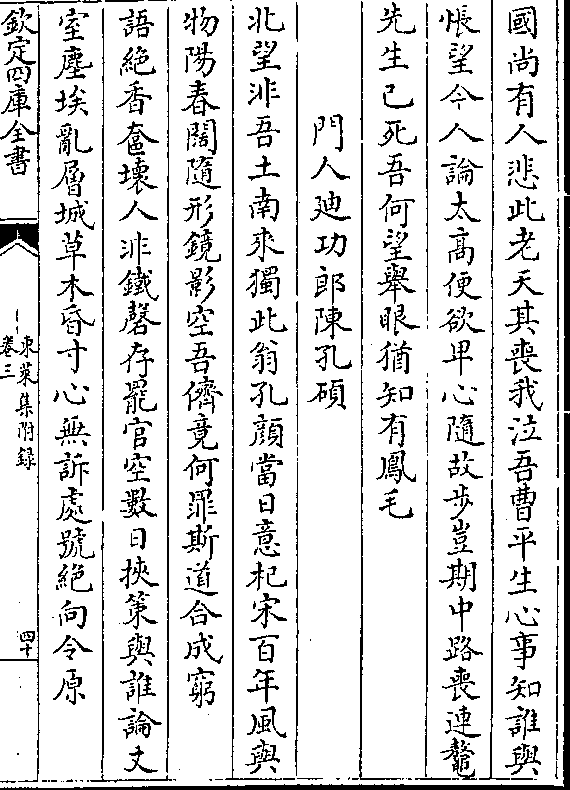 國尚有人悲此老天其喪我泣吾曹平生心事知誰與
悵望今人論太高便欲甲心隨故步豈期中路喪連鼇
先生已死吾何望舉眼猶知有鳳毛
門人廸功郎陳孔碩
北望非吾土南來獨此翁孔顔當日意杞宋百年風與
物陽春闊隨形鏡影空吾儕竟何罪斯道合成窮
語絶香奩壞人非鐵磬存罷官空數日挾策與誰論丈
室塵埃亂層城草木昏寸心無訴處號絶向令原
欽定四庫全書
東萊集附録
卷三
四十